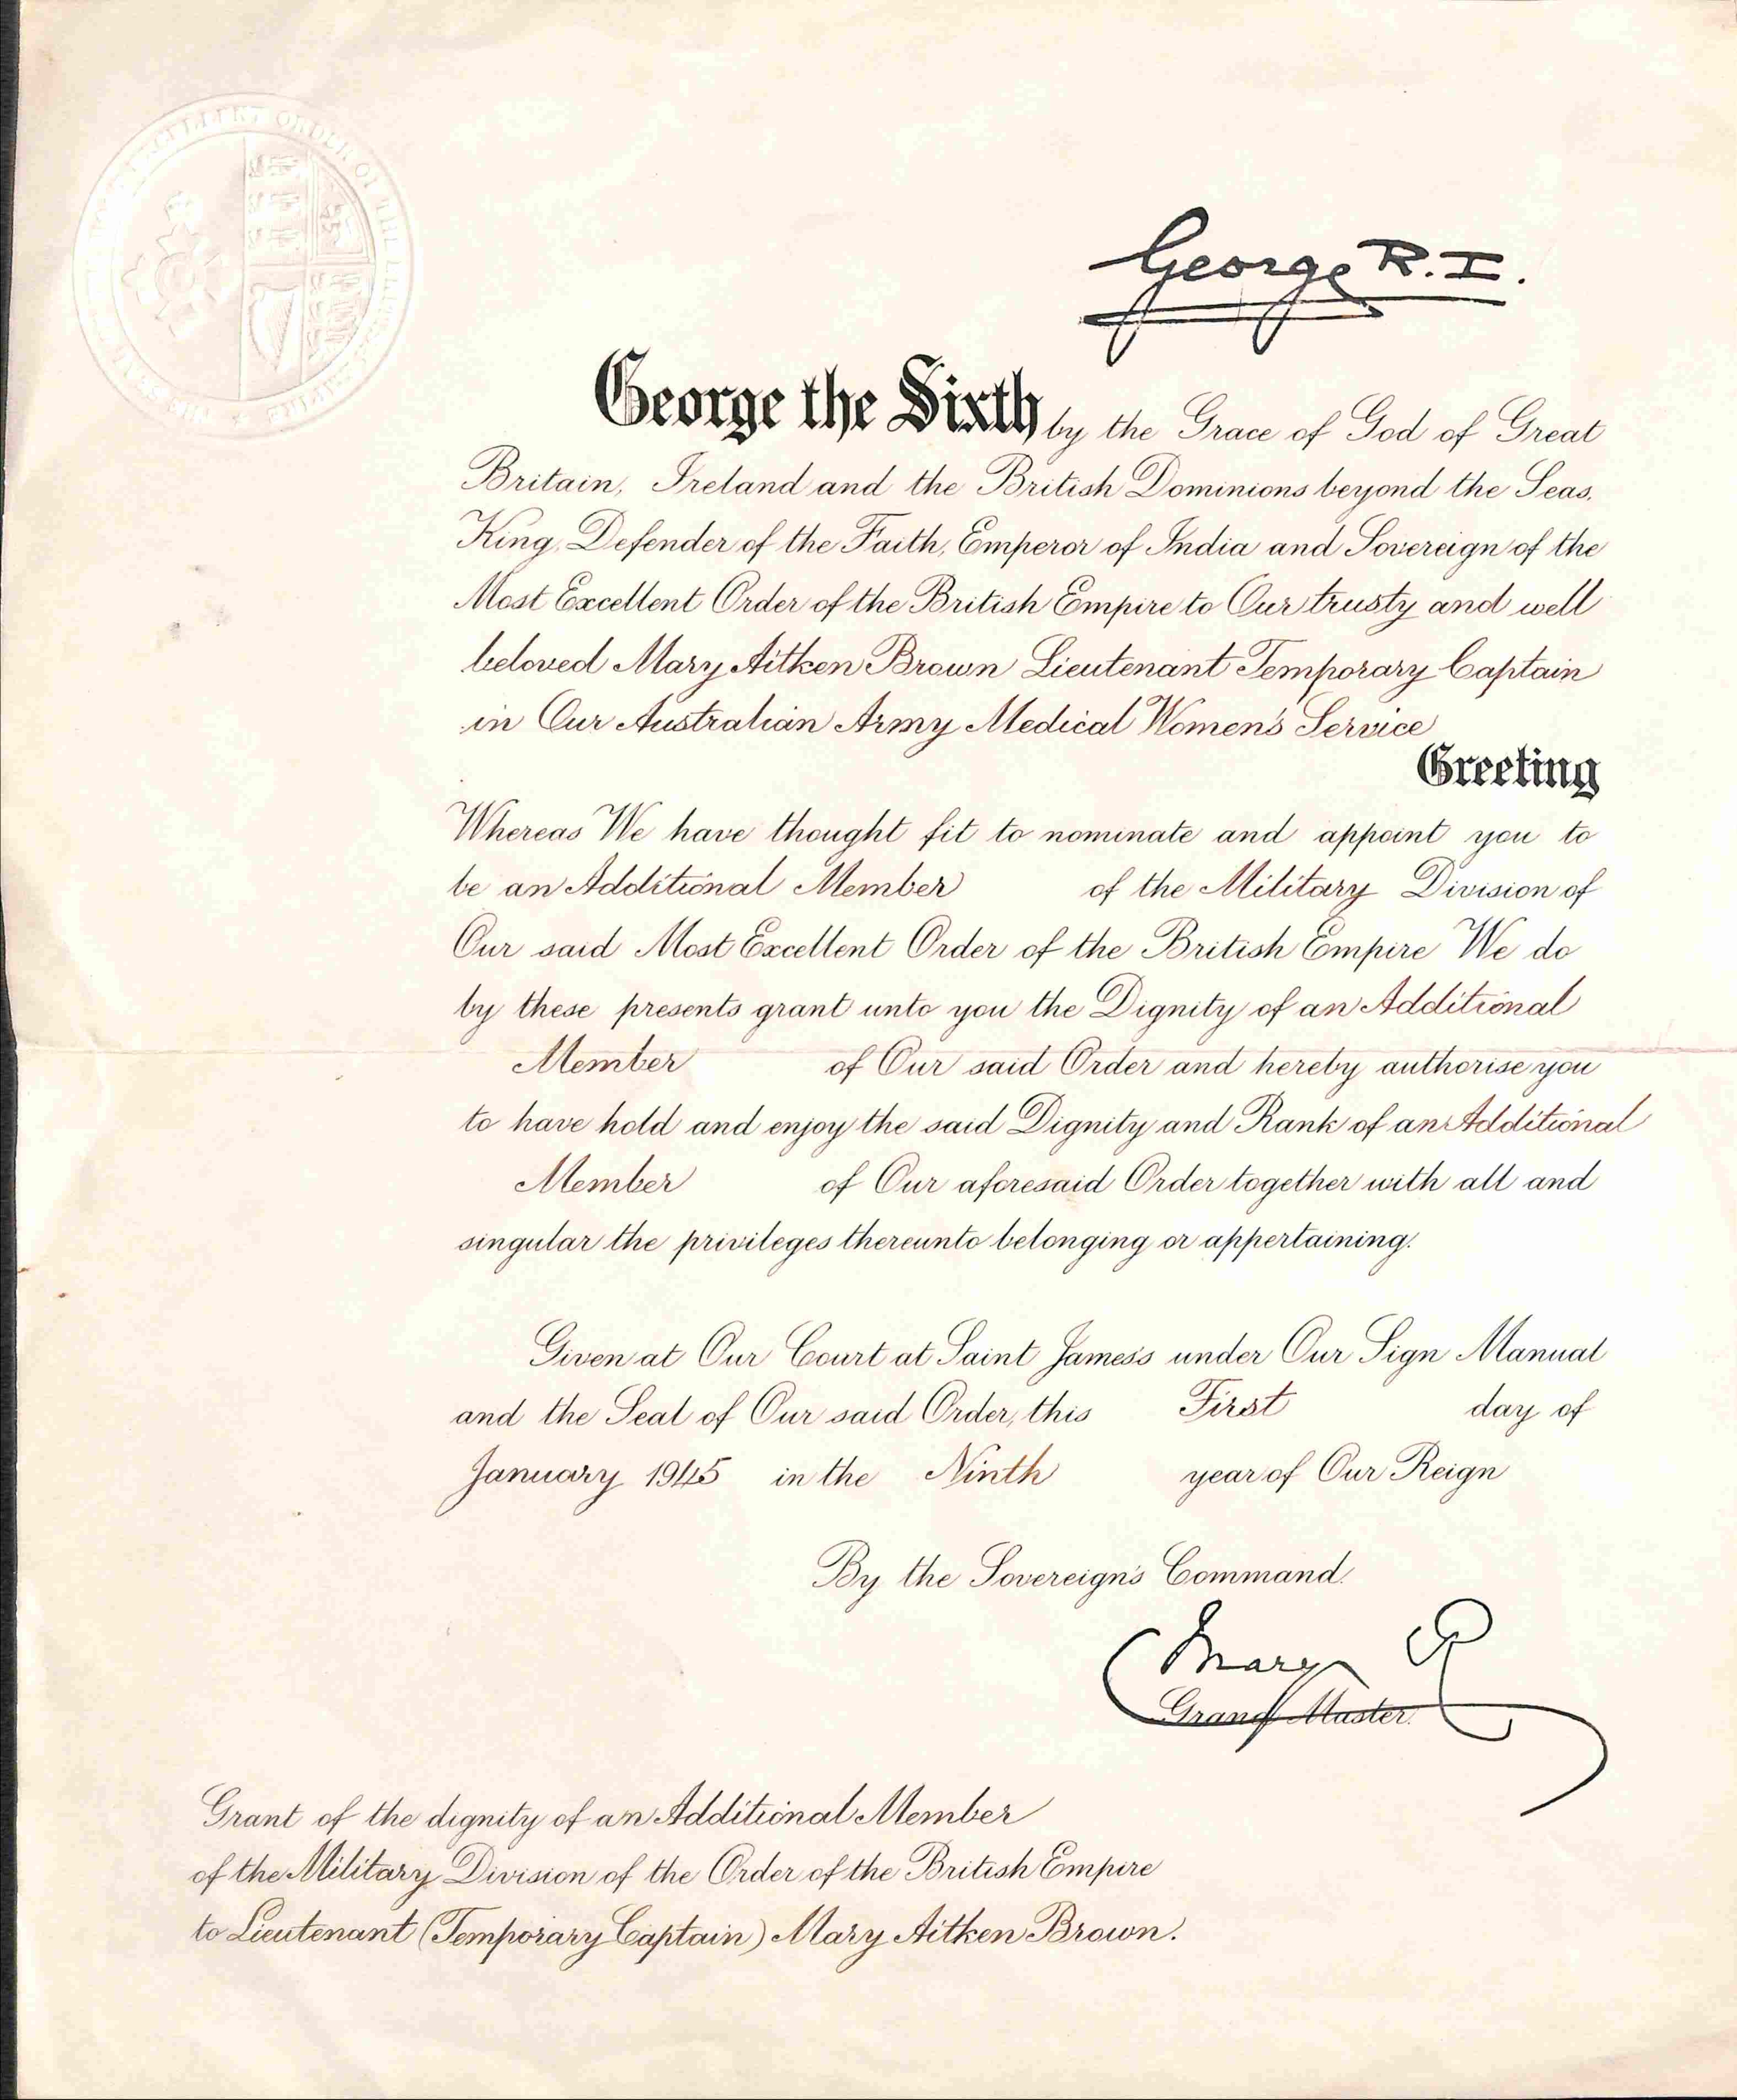 THE SEAL OF THE MOST EXCELLENT ORDER OF THE BRITISH EMPIRE
George R.I.
George the Sixth by the Grace of God of Great
Britain, Ireland and the British Dominions beyond the Seas,
King, Defender of the Faith, Emperor of India and Sovereign of the
Most Excellent Order of the British Empire to Our trusty and well
beloved Mary Aitken Brown Lieutenant Temporary Captain
in Our Australian Army Medical Women's Service
Greeting
Whereas We have thought fit to nominate and appoint you to
be an Additional Member of the Military Division of
Our said Most Excellent Order of the British Empire We do
by these presents grant unto you the Dignity of an Additional
Member of Our said Order and hereby authorise you
to have hold and enjoy the said Dignity and Rank of an Additional
Member of Our aforesaid Order together with all and
singular the privileges thereunto belonging or appertaining.
Given at Our Court at Saint James's under Our Sign Manual
and the Seal of Our said Order, this First day of
January 1945 in the Ninth year of Our Reign
By the Sovereign's Command.
Mary R
Grand Master.
Grant of the dignity of an Additional Member
of the Military Division of the Order of the British Empire
to Lieutenant (Temporary Captain) Mary Aitken Brown.